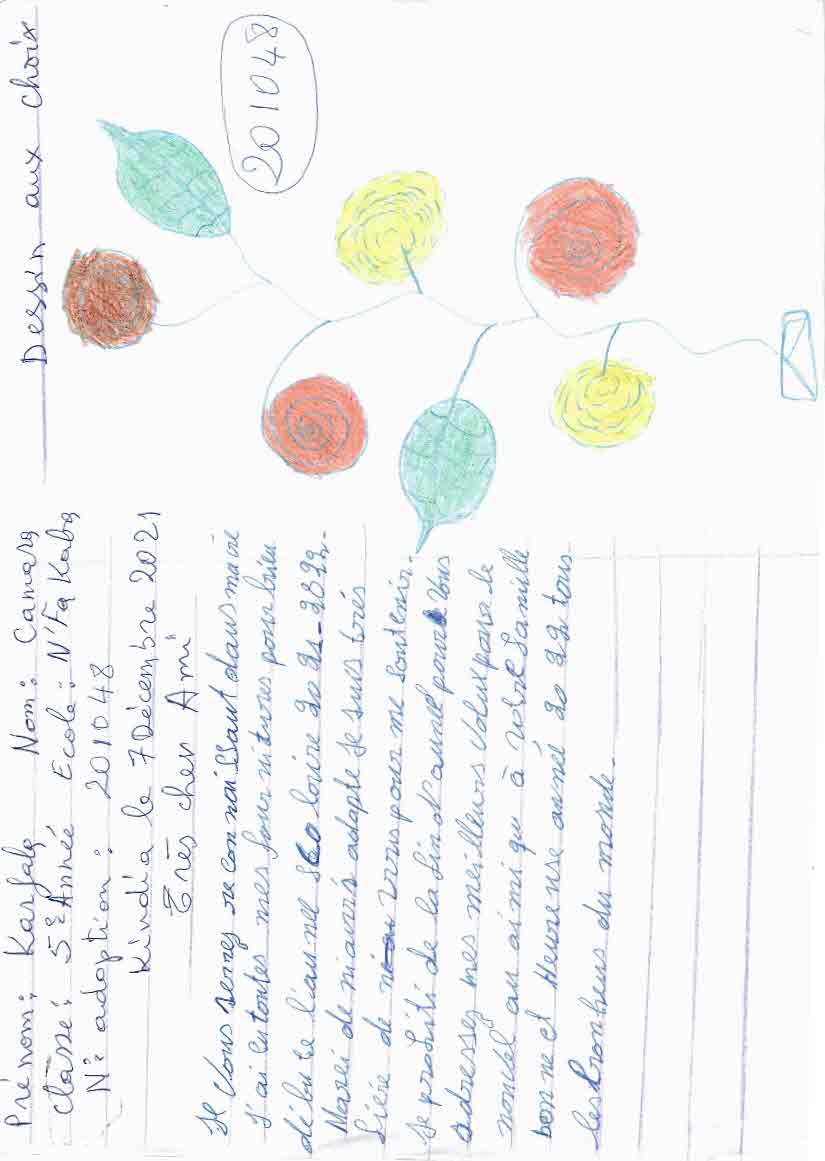 Prénom: Karfala Nom: Camara
Classe: 5e Année Ecole: N'Fa Kaba
N° adoption: 201048
Kindia le 7 Décembre 2021
Très cher Ami
Je Vous serrez reconnaissant dans ma vie
J'ai eu toutes mes fournitures pour bien
débuté l'année scolaire 2021-2022.
Merci de m'avoir adapte je suis très
fière de vous pour me soutenir.
Je profité de la fin d'année pour Vous
adressez mes meilleurs Voeux pour le
nouvel an ainsi qu à votre famille
bonne et Heureuse année 2022 tous
les bonheus du monde.
Dessin aux choix
201048